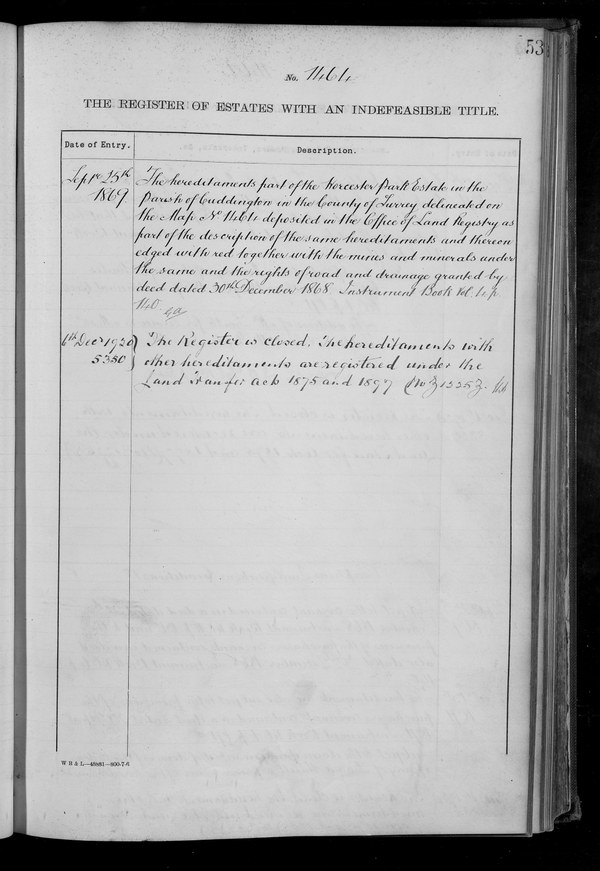 53
No. 1464
THE REGISTER OF ESTATES WITH AN INDEFEASIBLE TITLE.
Date of Entry.
Description.
Septr 25th
1869
The hereditaments part of the Worcester Park Estate in the
Parish of Cuddington in the County of Surrey delineated on
the Map No 1464 deposited in the Office of Land Registry as
part of the description of the same hereditaments and thereon
edged with red together with the mines and minerals under
the same and the rights of road and drainage granted by
deed dated 30th December 1868. Instrument Book Vol. 4 p.
140
6th Decr 1920
5350
The Register is closed. The hereditaments with
other hereditaments are registered under the
Land Transfer Acts 1875 and 1897
W H & L—48881—800-7-6